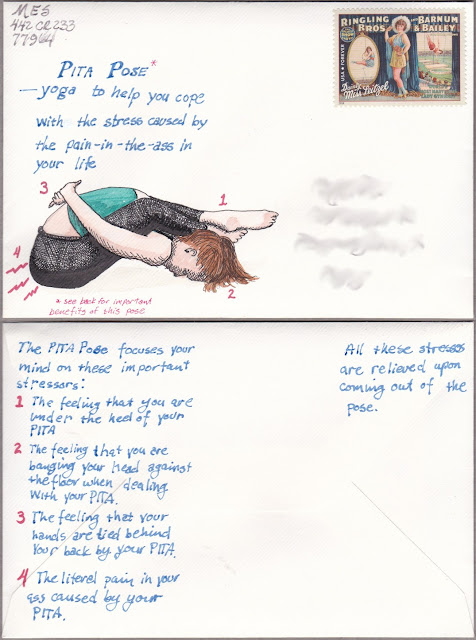 MES
442 CR 233
77964
PITA POSE*
— yoga to help you cope
with the stress caused by
the pain-in-the-ass in
your life
RINGLING BROS AND BARNUM & BAILEY
USA FOREVER
Dainty
Miss Leitzel
3
1
4
2
* see back for important
benefits of this pose
The PITA Pose focuses your
mind on these important
stressors:
1 The feeling that you are
under the heel of your
PITA
2 The feeling that you are
banging your head against
the floor when dealing
with your PITA.
3 The feeling that your
hands are tied behind
your back by your PITA.
4 The literal pain in your
ass caused by your
PITA.
All these stresses
are relieved upon
coming out of the
pose.